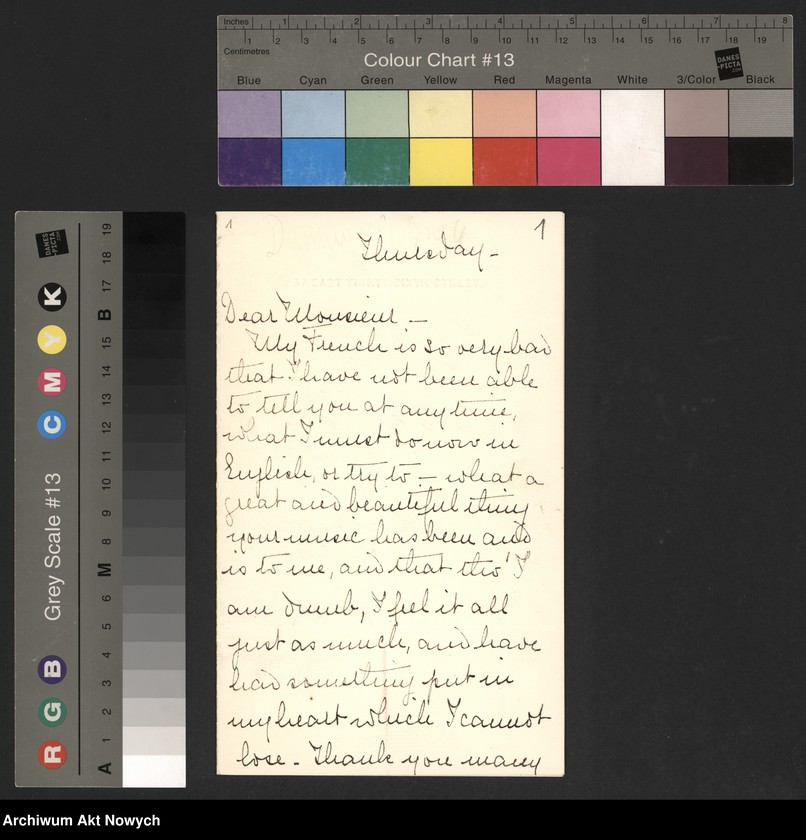 Inches 1 2 3 4 5 6 7 8
Centimetres 1 2 3 4 5 6 7 8 9 10 11 12 13 14 15 16 17 18 19
Colour Chart #13
DANES-PICTA.COM
Blue Cyan Green Yellow Red Magenta White 3/Color Black
DANES-PICTA.COM
Grey Scale #13
R G B C M Y K
A 1 2 3 4 5 6 M 8 9 10 11 12 13 14 15 B 17 18 19
1 1
Thursday-
Dear Monsieur -
My French is so very bad
that I have not been able
to tell you at any time,
what I must do now in
English, or try to - what a
great and beautiful thing
your music has been and
is to me, and that tho' I
am dumb, I feel it all
just as much, and have
had something put in
my heart which I cannot
lose. Thank you many
Archiwum Akt Nowych